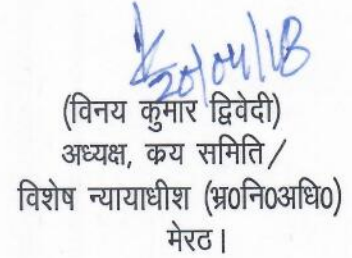 20/04/18
(विनय कुमार द्विवेदी)
अध्यक्ष, कय समिति /
विशेष न्यायाधीश (भ्र0नि0अधि0)
मेरठ।